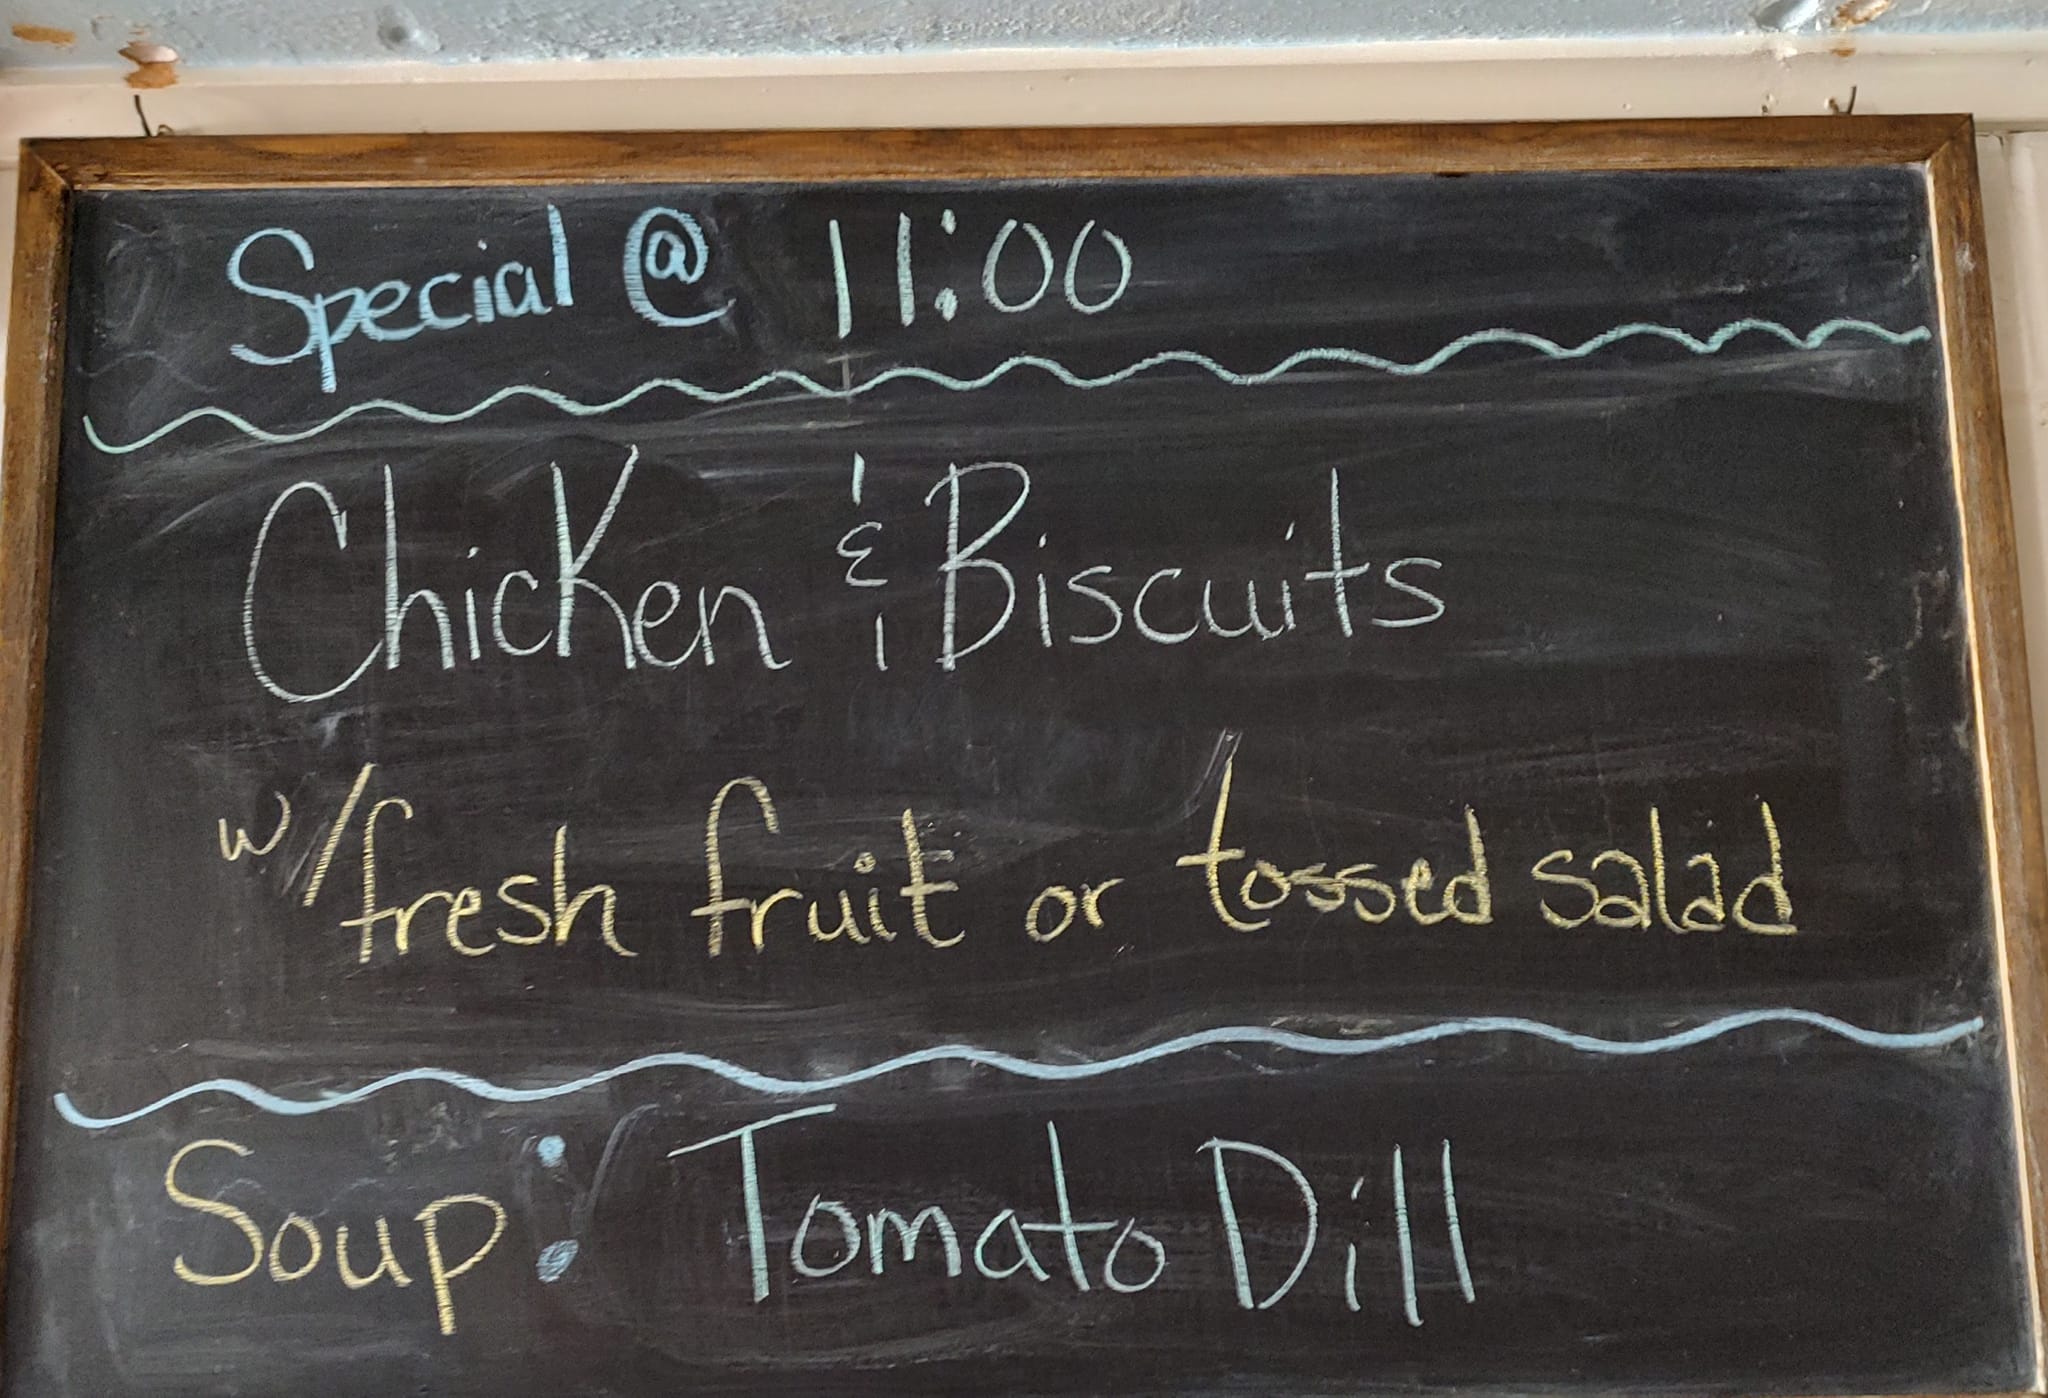 Special @ 11:00
Chicken & Biscuits
w/fresh fruit or tossed salad
Soup: Tomato Dill